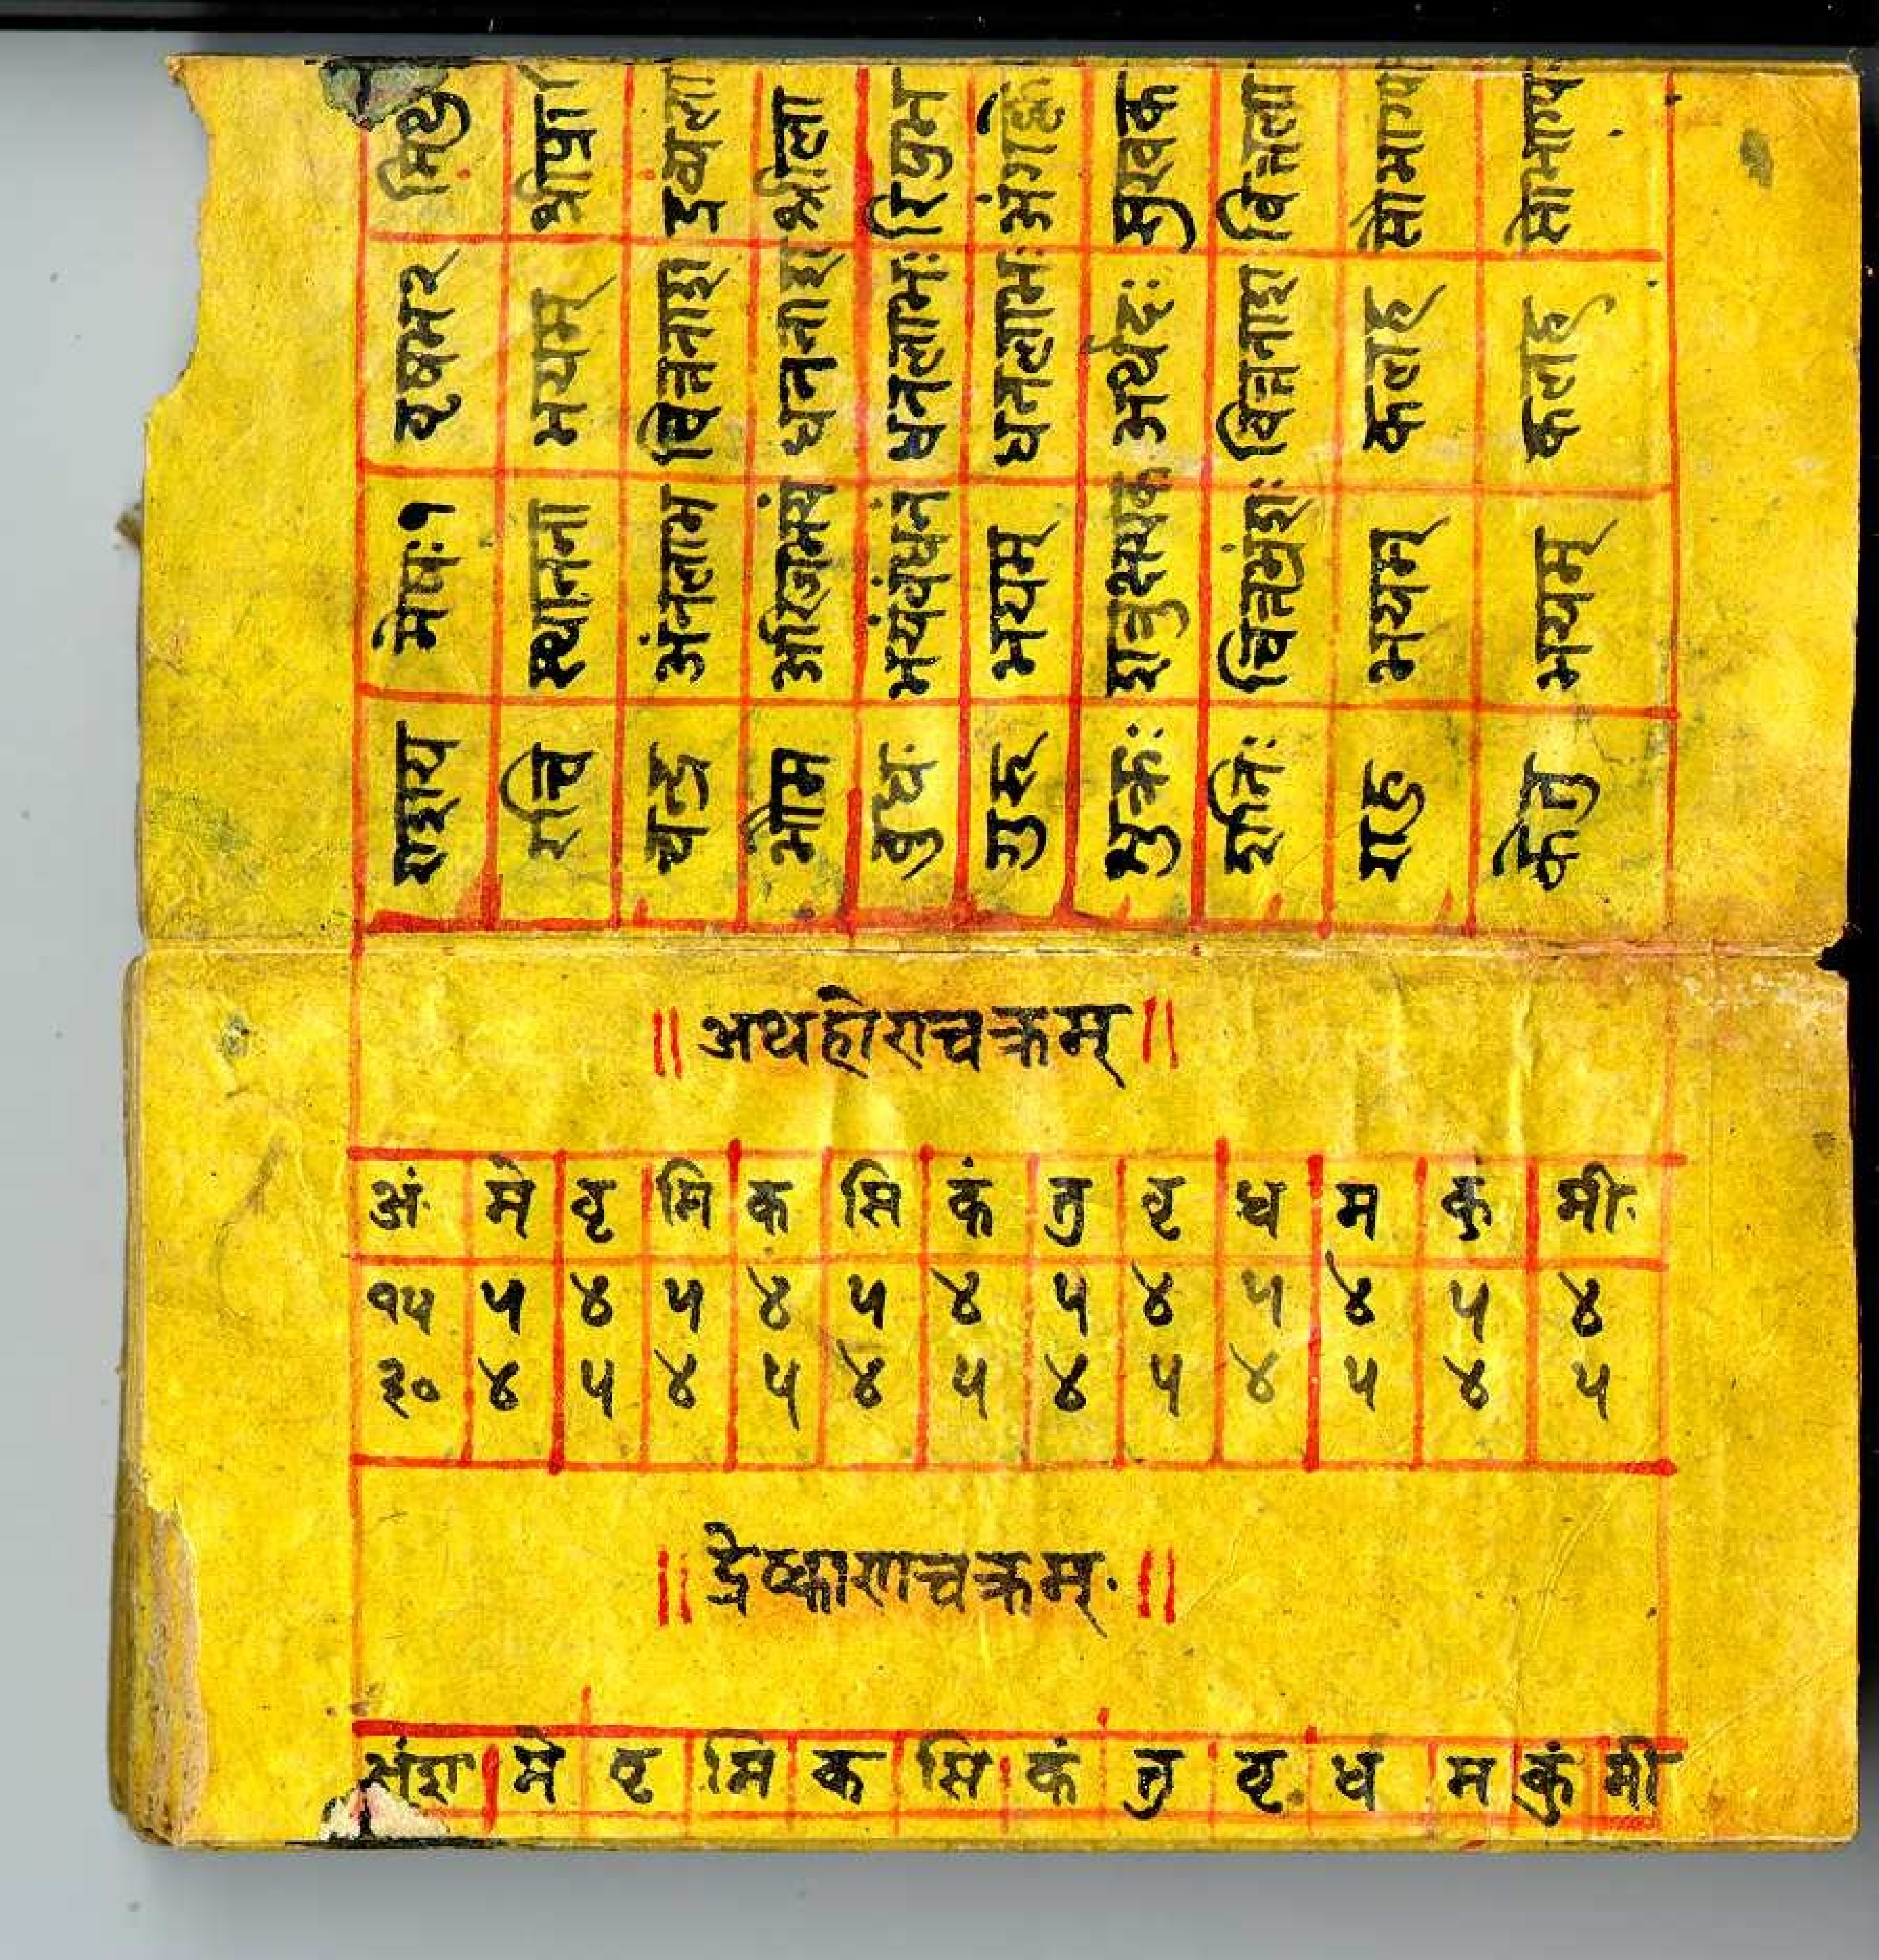 राशय मेषः१ वृषभ२ मिथु
रवि स्थानना भयम् श्रीप्रा
चन्द्र अंनलाभ वित्तनाश
भौम धननाश श्रीला
बुधः भयंबंधनं धनलाभः रिपुभ
गुरू भयम् धनलाभः
शुक्रः शत्रुक्षयक अर्थदः
शनिः वित्तनाश वित्तला
राहु भयम् कलह
केतु भयम् कलह
॥ अथहोराचक्रम् ॥
अं मे वृ मि क सिं कं तु वृ ध म कु मी
१५ ५ ४ ५ ४ ५ ४ ५ ४ ५ ४ ५ ४
३० ४ ५ ४ ५ ४ ५ ४ ५ ४ ५ ४ ५
॥ द्रेष्काणचक्रम् ॥
अंश मे वृ मि क सिं कं तु वृ ध म कुं मी